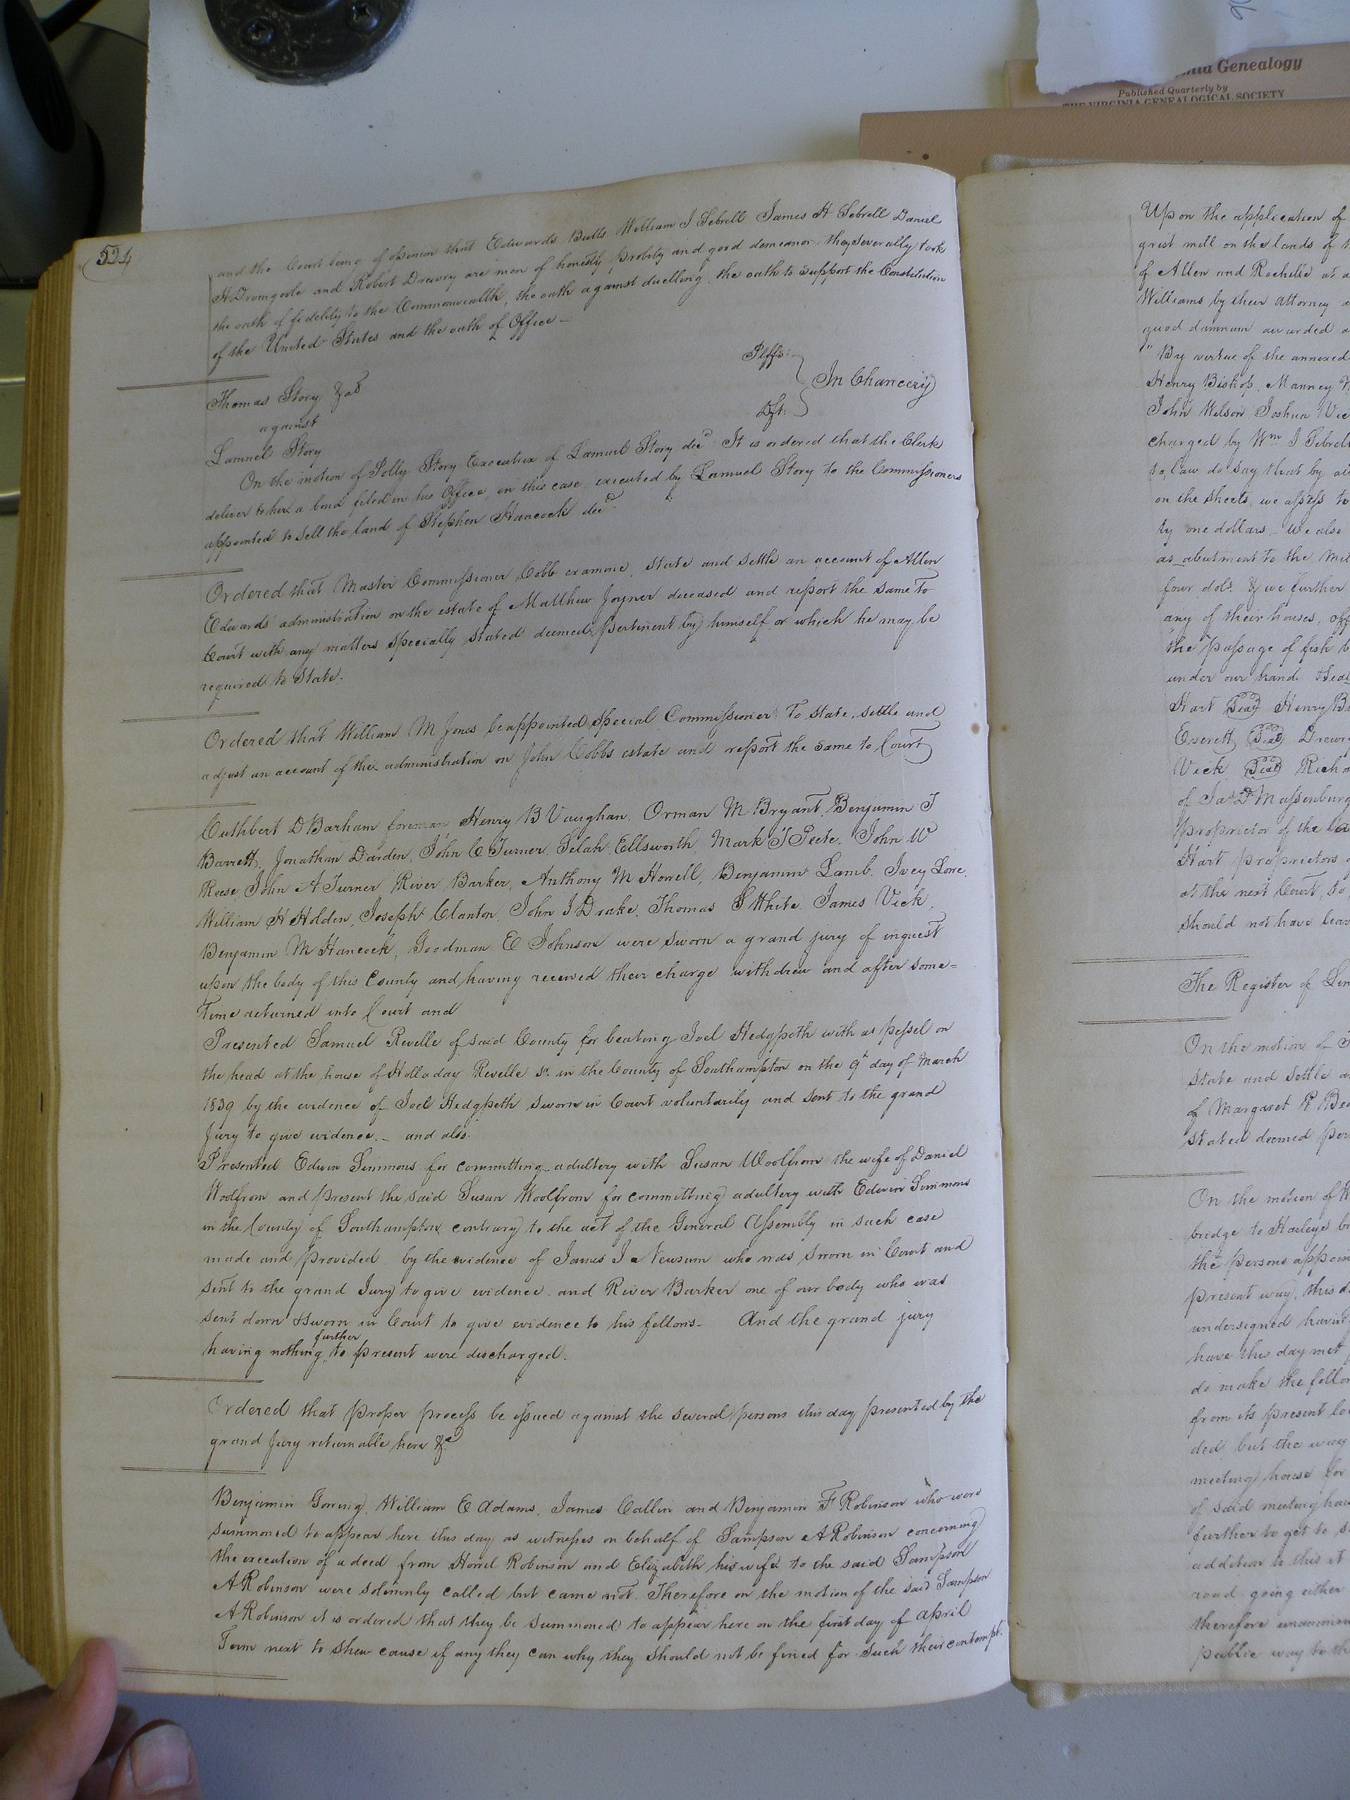 524
and the Court being of opinion that Edwards Butts William J Sebrell James H Sebrell Daniel
H Dromgoole and Robert Drewry are men of honesty probity and good demeanor they severally took
the oath of fidelity to the Commonwealth, the oath against duelling, the oath to support the Constitution
of the United States and the oath of Office —
Thomas Story &als Pltffs:
against In Chancery
Lamuel Story Dft:
On the motion of Polly Story Executrix of Lamuel Story decd It is ordered that the Clerk
deliver to her a bond filed in his Office, in this case, executed by Lamuel Story to the Commissioners
appointed to sell the land of Stephen Hancock decd
Ordered that Master Commissioner Cobb examine, state and settle an account of Allen
Edwards' administration on the estate of Matthew Joyner deceased and report the same to
Court with any matters specially stated deemed pertinent by himself or which he may be
required to State.
Ordered that William M Jones be appointed special Commissioner To state, settle and
adjust an account of the administration on John Cobbs estate and report the same to Court
Cuthbert D Barham foreman Henry B Vaughan, Orman M Bryant, Benjamin J
Barrett, Jonathan Darden, John C Turner, Selah Ellsworth, Mark T Peete, John W
Reese, John A Turner River Barker, Anthony M Howell, Benjamin Lamb, Ivey Lore,
William H Holden, Joseph Clanton, John J Drake, Thomas S White, James Vick,
Benjamin M Hancock, Goodman E Johnson were sworn a grand jury of inquest
upon the body of this County and having received their charge withdrew and after some=
Time returned into Court and
Presented Samuel Revelle of said County for beating Joel Hedgpeth with a pessel on
the head at the house of Holladay Revelle Sr. in the County of Southampton on the 9th day of March
1839 by the evidence of Joel Hedgpeth sworn in Court voluntarily and sent to the grand
Jury to give evidence — and also
Presented Edwin Simmons for committing adultery with Susan Woolfrom the wife of Daniel
Woolfrom and present the said Susan Woolfrom for committing adultery with Edwin Simmons
in the County of Southampton contrary to the act of the General Assembly in such case
made and provided by the evidence of James J Newsum who was sworn in Court and
sent to the grand Jury to give evidence and River Barker one of our body who was
sent down & sworn in Court to give evidence to his fellows — And the grand jury
having nothing further to present were discharged.
Ordered that proper process be issued against the several persons this day presented by the
grand Jury returnable here &c
Benjamin Goring, William E Adams, James Callin and Benjamin F Robinson who were
summoned to appear here this day as witnesses on behalf of Sampson A Robinson concerning
the execution of a deed from Howel Robinson and Elizabeth his wife to the said Sampson
A Robinson were solemnly called but came not. Therefore on the motion of the said Sampson
A Robinson it is ordered that they be summoned to appear here on the first day of April
Term next to shew cause if any they can why they should not be fined for such their contempt.
Upon the application of
grist mill on the lands of
of Allen and Rochelle as a
Williams by their attorney
quod damnum awarded
"By virtue of the annexed
Henry Bishop, Manney
John Wilson Joshua Vic
charged by Wm J Sebrell
on the sheets, we assess to
by one dollars. We also
as abutment to the mil
four dols. & we further
any of their houses, off
the passage of fish
under our hand
Hart Seal Henry B
Everett Seal Drewry
Vick Seal Richa
of Jas D Massenburg
proprietor of the
Hart proprietors
at the next Court, to
should not have leav
The Register of
On the motion of
State and Settle a
of Margaret R
stated deemed per
On the motion of
bridge to
the persons appoin
present way, this
undersigned havin
have this day met
do make the follo
from its present lo
ded but the way
meeting house for
of said meeting hou
further to get to
addition to this it
road going either
therefore unanimou
public way to th
Genealogy
Published Quarterly by
THE VIRGINIA GENEALOGICAL SOCIETY